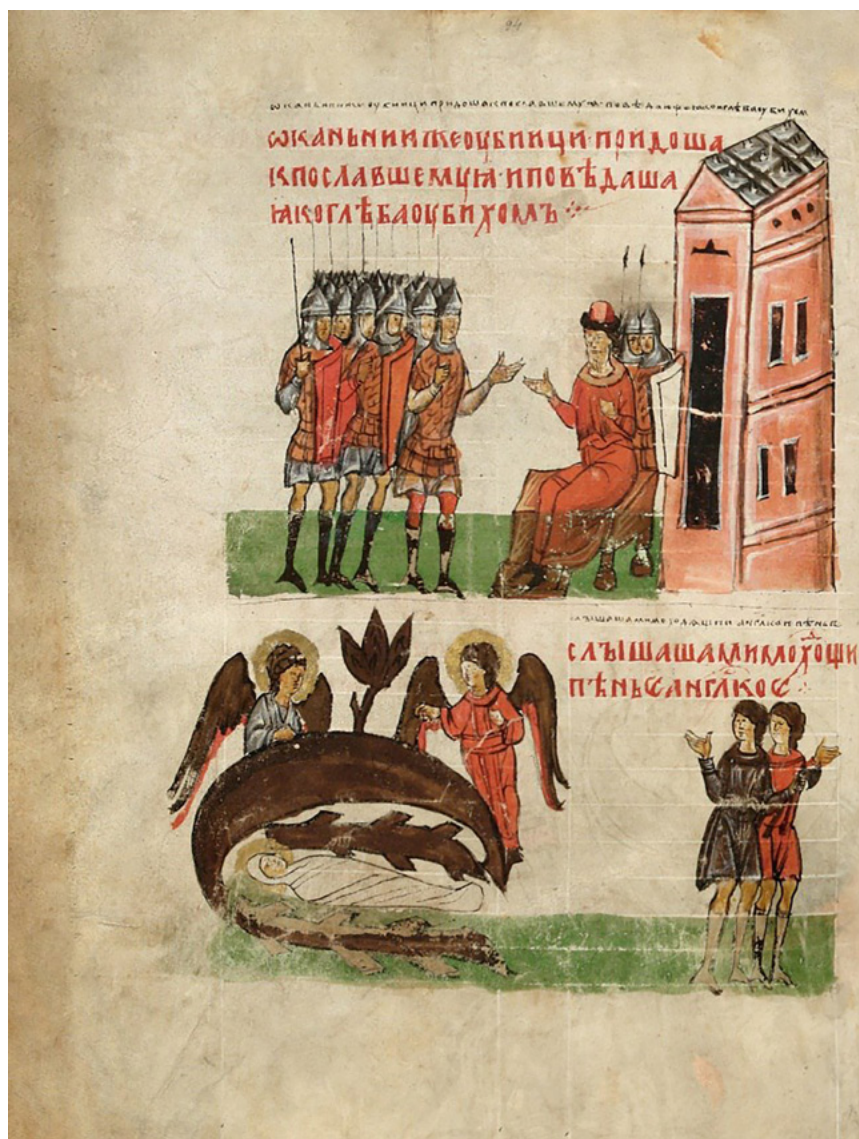 94
ѡканьнииже оубиици · придоша к пославшему ꙗ · и повѣдаша ꙗко глѣба оубихом
ѡканьнии же оубиици · придоша
к пославшему ꙗ · и повѣдаша
ꙗко глѣба оубихомъ
слышаша мимоходѧщии англкое пѣнье
слышаша мимохоѧщи
пѣнье англкое